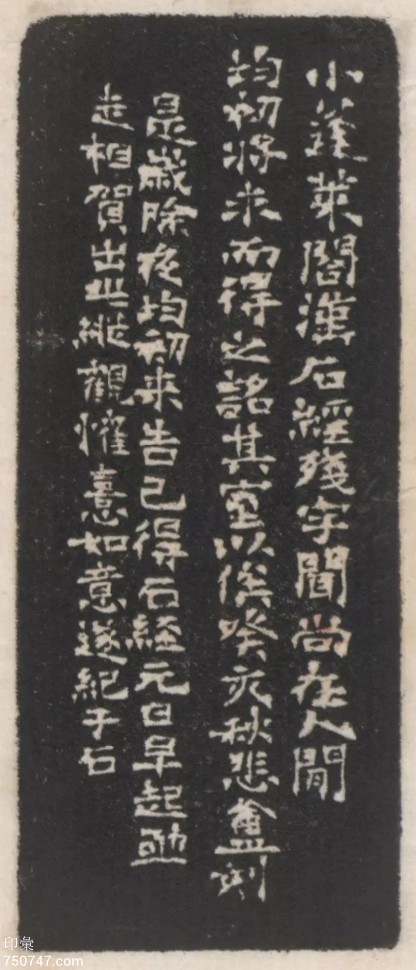 小蓬萊閣漢石經殘字聞尚在人間
均初將求而得之詺其室以俟癸亥秋悲盦刻
是歲除夜均初來告已得石經元日早起
走相賀出此縱觀懽憙如意遂紀于石
印彙
750747.com